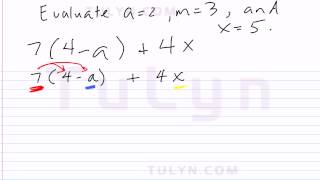 Evaluate a=2, m=3, and
x=5.
7(4-a) + 4x
7(4-a) + 4x
Tulyn
TULYN.COM